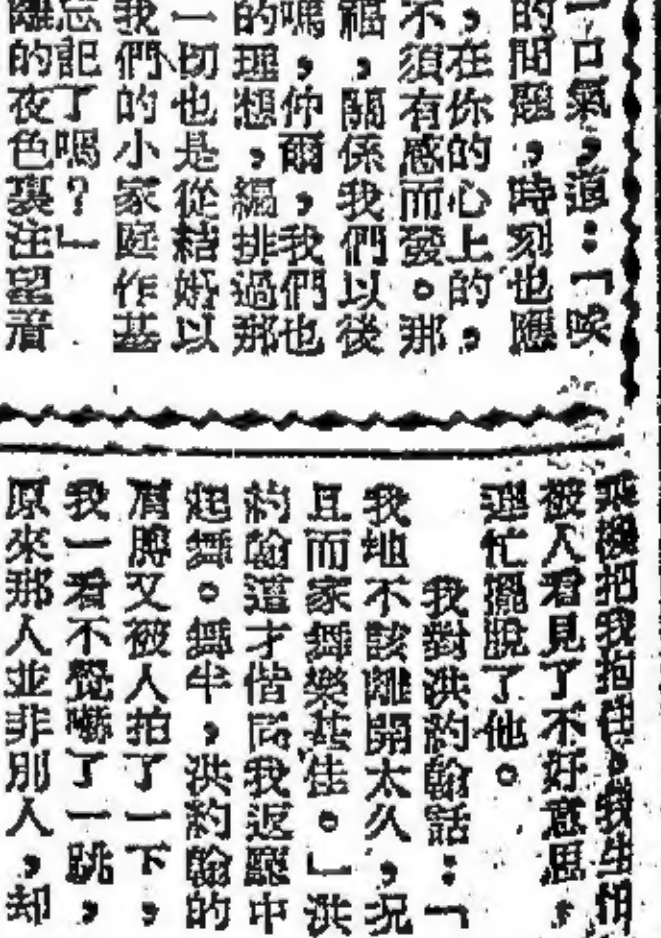 一口氣,道:「唉
的問題,時刻也應
,在你的心上的,
不須有感而發。那
福,關係我們以後
嗎,仲爾,我們也
的理想,編排過那
一切也是從結婚以
我們的小家庭作基
忘記了嗎?」
離的夜色裏注望着
乘機把我抱住,我生怕
被人看見了不好意思,
連忙擺脫了他。
我對洪約翰話:「
我地不該離開太久,況
且而家舞樂甚佳。」洪
約翰這才偕同我返廳中
起舞。舞半,洪約翰的
肩膊又被人拍了一下,
我一看不覺嚇了一跳,
原來那人並非別人,却